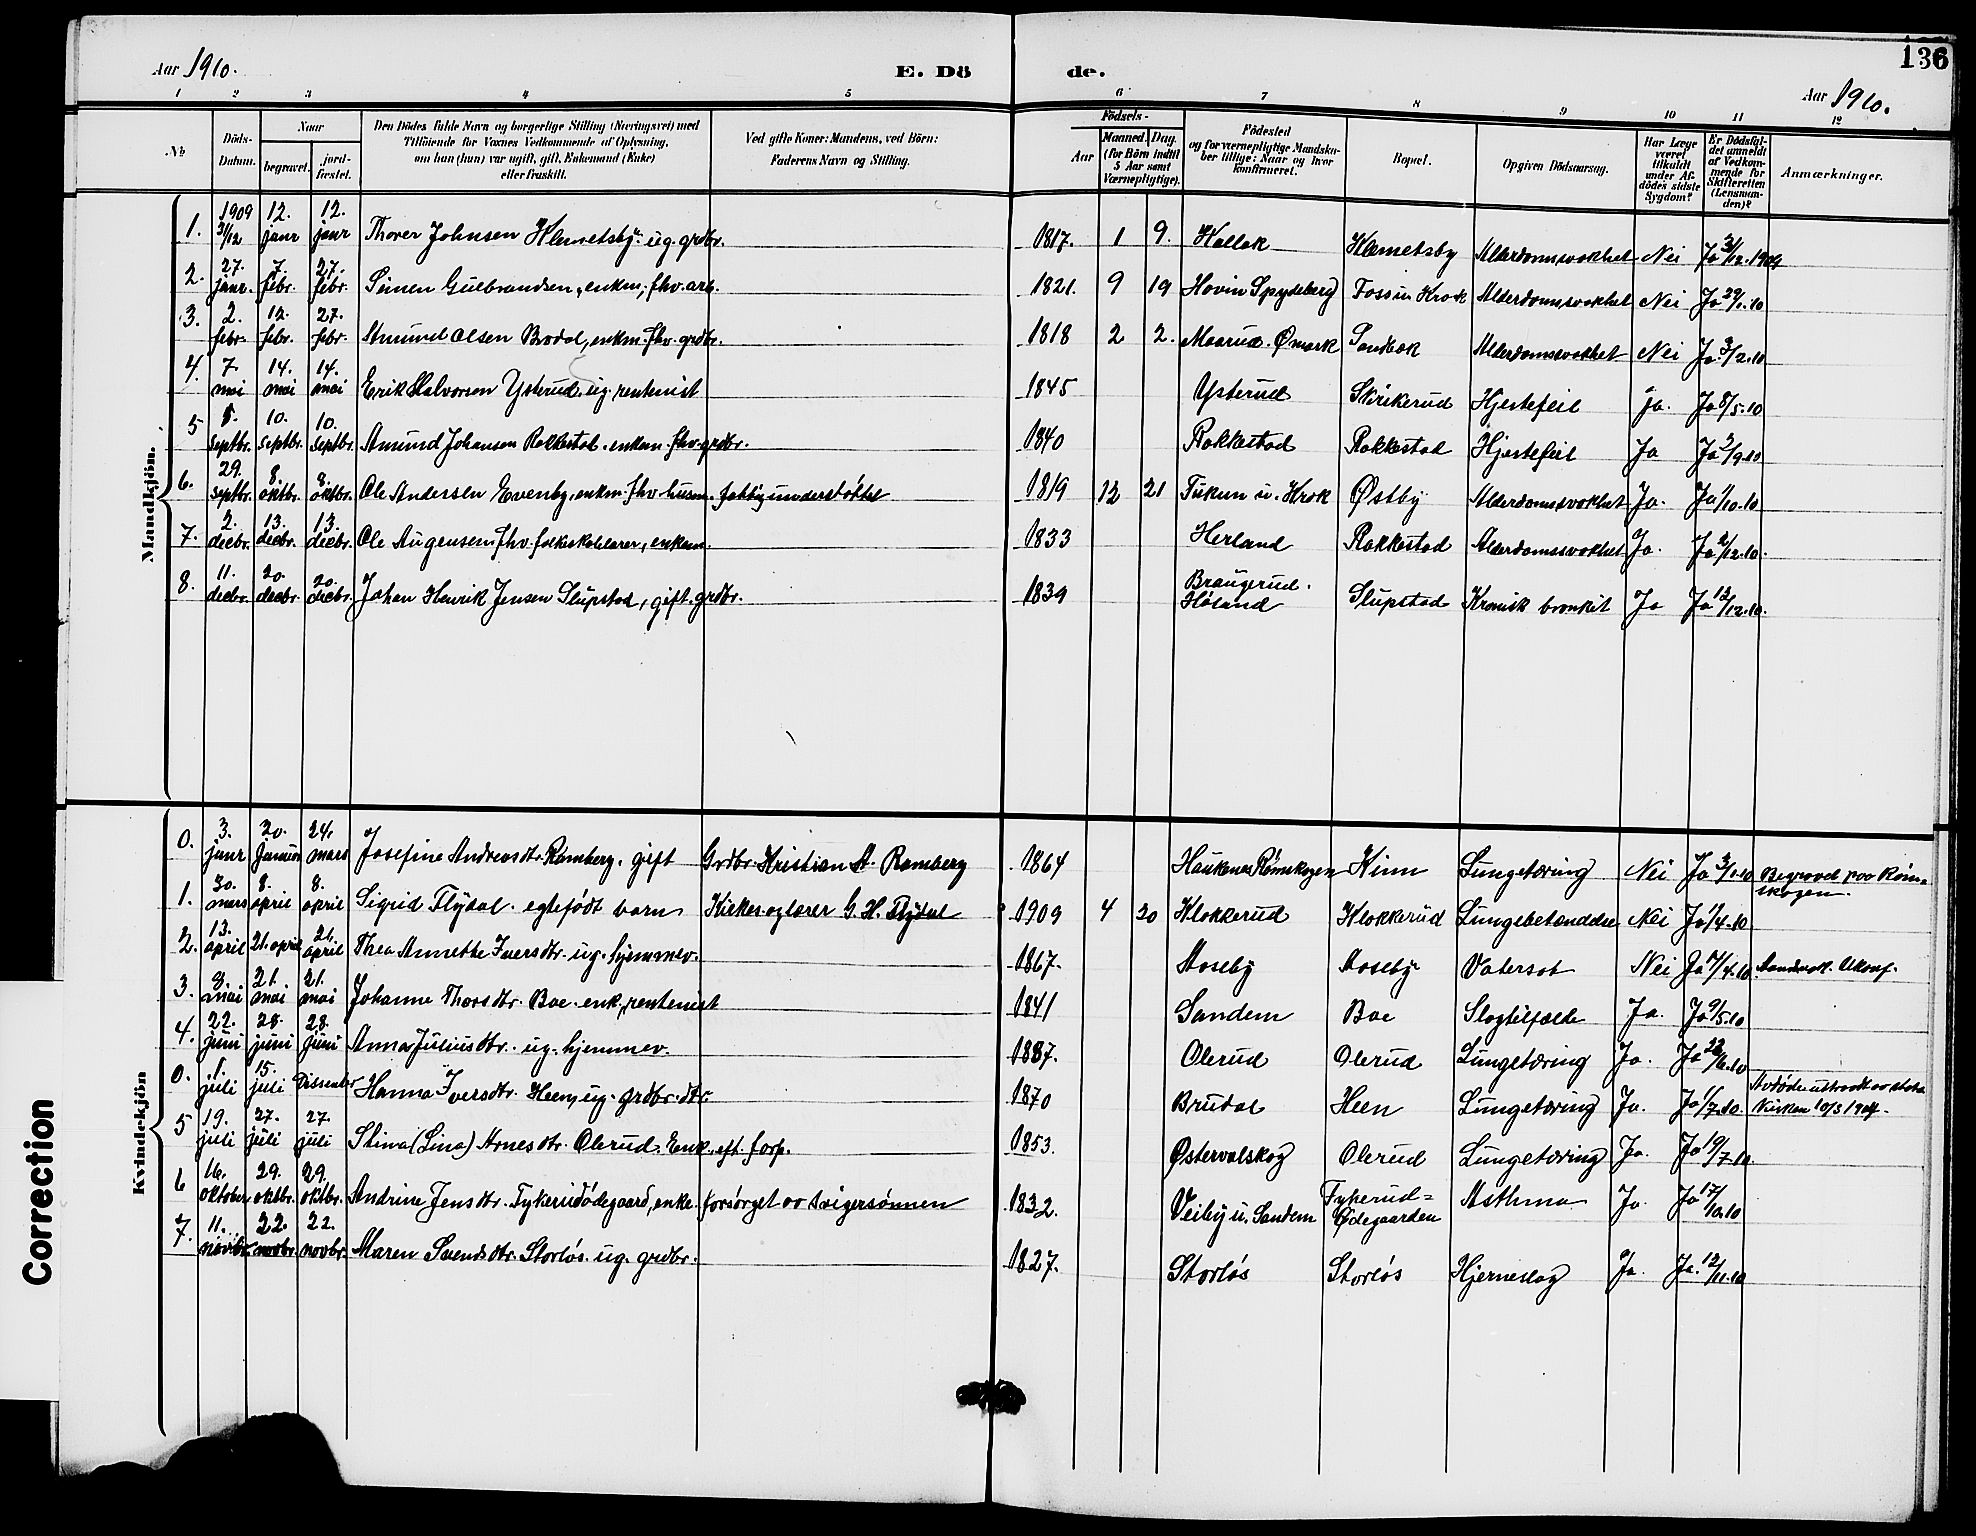 136
Aar 1910. E. Dö de. Aar 1910.
1 2 3 4 5 6 7 8 9 10 11 12
No Döds-Datum. Naar begravet. jord-fæstet. Den Dödes fulde Navn og borgerlige Stilling (Næringsvei) med Tilföiende for Voxnes Vedkommende af Oplysning, om han (hun) var ugift, gift, Enkemand (Enke) eller fraskilt. Ved gifte Koner: Mandens, ved Börn: Faderens Navn og Stilling. Födsels- Aar Maaned. Dag. (for Börn indtil 5 Aar samt Værnepligtige). Födested og for værnepligtige Mandskaber tillige: Naar og hvor konfirmeret. Bopæl. Opgiven Dödsaarsag. Har Læge været tilkaldt under Afdödes sidste Sygdom? Er Dödsfaldet anmeldt af Vedkommende for Skifteretten (Lensmanden)? Anmærkninger.
Mandkjön.
1. 1909 31/12 12. janr 12. janr Thorer Johnsen Hemetsby. ug. grdbr. 1817. 1 9. Kollak Hemetsby Alderdomssvakhet Nei Ja 31/12.1909
2. 27. janr. 7. febr. 27. febr. Simen Gulbrandsen, enkm., fhv. arb. 1821. 9 19 Hovin Spydeberg Fossum Krok Alderdomssvakhet Nei Ja 29/1.10
3. 2. febr. 12. febr. 27. febr. Amund Olsen Brodal, enkm. fhv. grdbr. 1818 2 2. Maarud. Ømark Sandbæk Alderdomssvakhet Nei Ja 3/2.10
4. 7. mai 14. mai 14. mai Erik Halvorsen Ysterud. ug. rentenist 1845 Ysterud Skirikerud Hjertefeil ja. Ja 8/5.10
5 septbr. 10. septbr. 10. septbr. Amund Johansen Rakkestad. enkem. fhv. grdbr. 1840 Rakkestad Rakkestad Hjertefeil Ja Ja /9.10
6. 29. septbr. 8. oktbr. 8. oktbr. Ole Anderssen Evenby, enkm. fhv. husm. fattigunderstøttet 1819 12 21 u. Krok Østby Alderdomssvakhet Ja. Ja 1/10.10
7. 2. decbr. 13. decbr. 13. decbr. Ole Augensen, fhv. folkeskolelærer, enkem. 1833 Herland Rakkestad Alderdomssvakhet Ja. Ja 2/12.10.
8. 11. decbr. 20. decbr. 20. decbr. Johan Henrik Jensen Slupstad, gift. grdbr. 1839 Braugerud. Høland Slupstad Kronisk bronkit Ja Ja 12/12.10.
Kvindekjön
0. 3. janr 20. Januar 24. mars Josefine Andreasdtr. Ramberg. gift Grdbr. Kristian A. Ramberg 1864 Haukenes Rømskogen Kinn Lungetæring Nei Ja 3/1.10 Begravet paa Rømskogen.
1. 30. mars 8. april 8. april Sigrid Flydal. egtefødt barn Kirkesanglærer G. H. Flydal 1909 4 20 Klokkerud Klokkerud Lungebetændelse Nei Ja 1/4.10
2. 13. april 21. april 21. april Thea Annette Iversdtr. ug. hjemmev. 1867. Aoseby Aoseby Vatersot Nei Ja 17/4.10 Aandssvak. Ukonf.
3. 8. mai 21. mai 21. mai Johanne Thorsdtr. Boe. enk., rentenist 1841 Sandem Boe Slagtilfælde Ja. Ja 9/5.10
4. 22. juni 28. juni 28. juni Anna Juliusdtr. ug. hjemmev. 1887. Olerud Olerud Lungetæring Ja. Ja 22/6.10
0. 1. juli 15. juli Dissenter Hanna Iversdtr. Heen, ug. grdbr. dtr. 1870 Brudal Heen Lungetæring Ja. Ja 1/7.10. Avdøde utraadt av statskirken 10/3 1904.
5 19. juli 27. juli 27. juli Stina (Lina) Arnesdtr. Olerud. Enk. eft. forp. 1853. Østervalskog Olerud Lungetæring Ja. Ja 19/7.10
6 16. oktober 29. oktbr. 29. oktbr. Andrine Jensdtr. Fykerudødegaard, enke. forsørget av svigersønnen 1832. Veiby u. Sandem Fykerud=Ødegaarden Asthma Ja Ja 17/10.10
7. 11. novbr. 22. novbr. 22. novbr. Maren Svendsdtr. Storløs. ug. grdbr. 1827. Storløs Storløs Hjerneslag Ja. Ja. 12/11.10
Correction